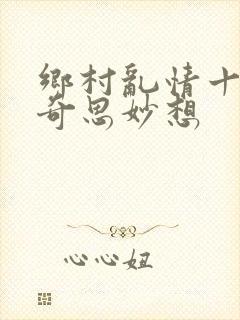 鄉村亂情十
奇思妙想
心心妞